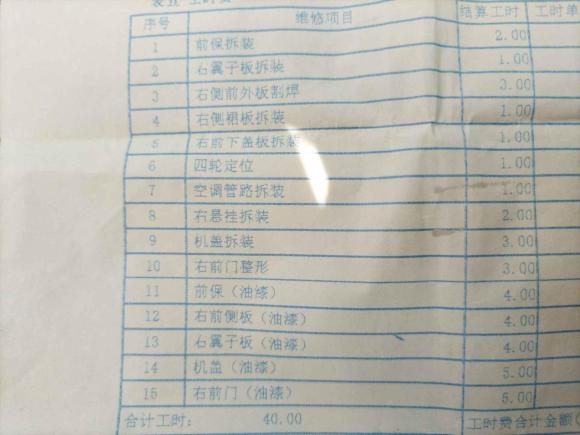 序号 维修项目 结算工时 工时单
1 前保拆装 2.00
2 右翼子板拆装 1.00
3 右侧前外板割焊 3.00
4 右侧裙板拆装 1.00
5 右前下盖板拆装 1.00
6 四轮定位 1.00
7 空调管路拆装 1.00
8 右悬挂拆装 2.00
9 机盖拆装 3.00
10 右前门整形 3.00
11 前保（油漆） 4.00
12 右前侧板（油漆） 4.00
13 右翼子板（油漆） 4.00
14 机盖（油漆） 5.00
15 右前门（油漆） 5.00
合计工时： 40.00 工时费合计金额(